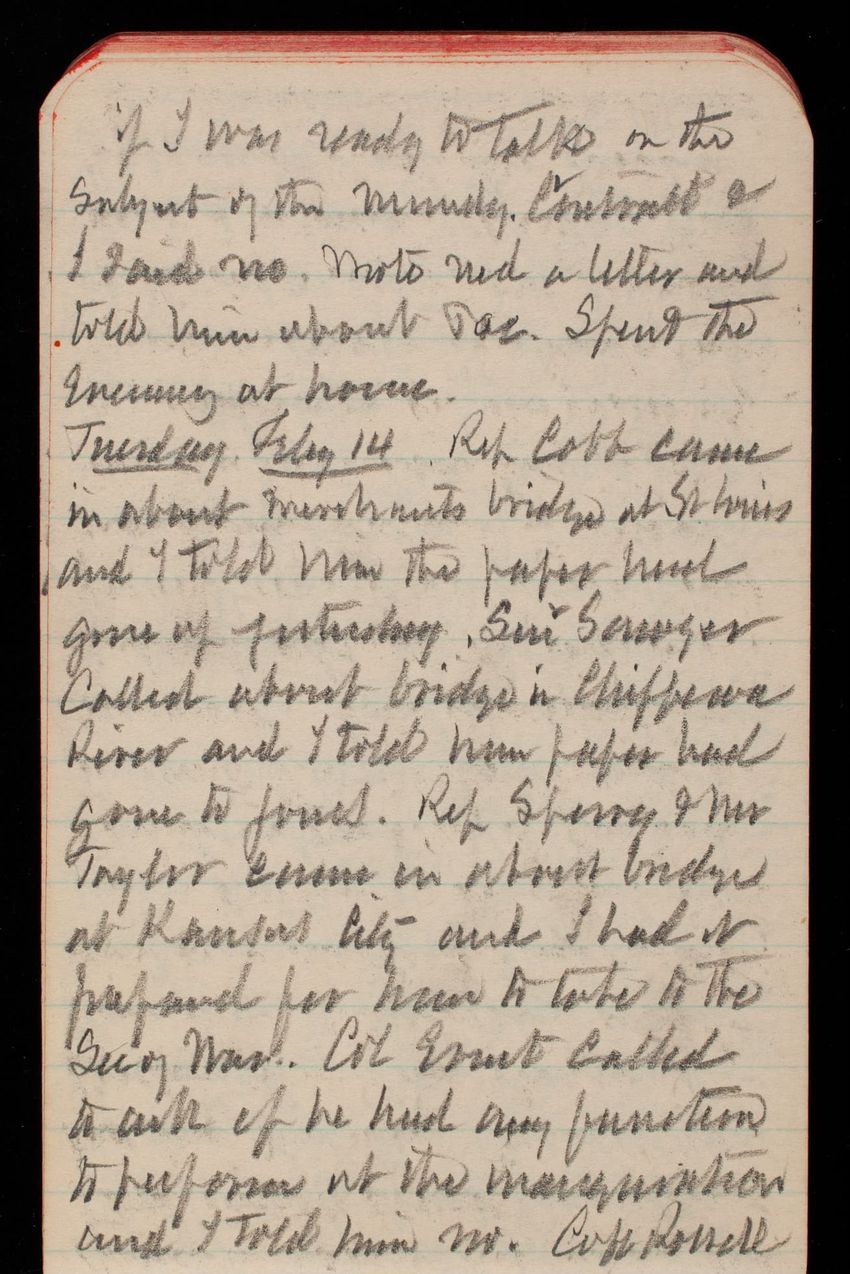 if I was ready to talk on the
subject of the Mundy. Contract &
I said no. Wrote Ned a letter and
told him about Doc. Spent the
Evening at home.
Tuesday Feby 14. Rep Cobb came
in about Merchants bridge at St Louis
and I told him the paper had
gone up yesterday. Sen Sawyer
Called about bridge in Chippewa
River and I told him paper had
gone to Jones. Rep Sperry & Mr
Taylor came in about bridge
at Kansas City and I had it
prepared for him to take to the
Sec of War. Col Ernst called
to ask if he had any function
to perform at the inauguration
and I told him no. Capt Rossell